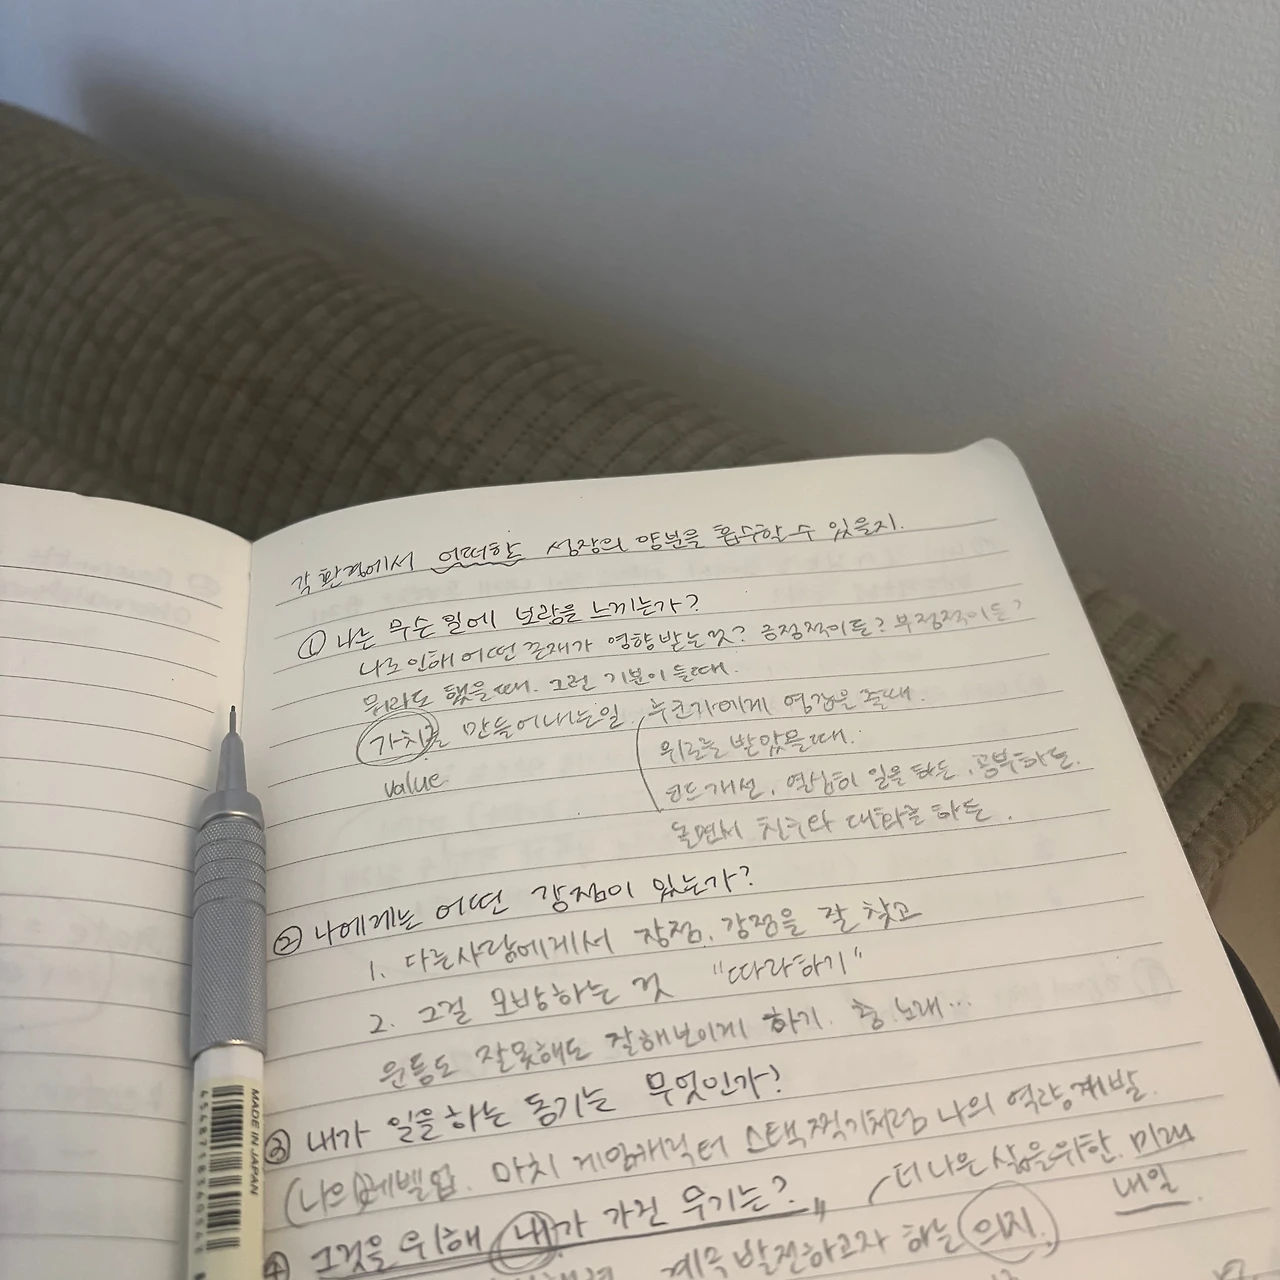 각 환경에서 어떠한 성장의 양분을 흡수할 수 있을지.
① 나는 무슨 일에 보람을 느끼는가?
나로 인해 어떤 존재가 영향 받는 것? 긍정적이든? 부정적이든?
뭐라도 했을 때. 그런 기분이 들 때.
가치를 만들어내는 일. 누군가에게 영감을 줄 때.
value 위로를 받았을 때.
코드 개선, 열심히 일을 하든, 공부하든.
놀면서 친구와 대화를 하든.
② 나에게는 어떤 강점이 있는가?
1. 다른사람에게서 장점, 강점을 잘 찾고
2. 그걸 모방하는 것 "따라하기"
운동도 잘못해도 잘해보이게 하기. 춤, 노래...
③ 내가 일을 하는 동기는 무엇인가?
(나의)레벨업. 마치 게임캐릭터 스택 찍기처럼 나의 역량 계발.
더 나은 삶을 위한. 미래
내일
④ 그것을 위해 내가 가진 무기는?
계속 발전하고자 하는 의지.
MADE IN JAPAN